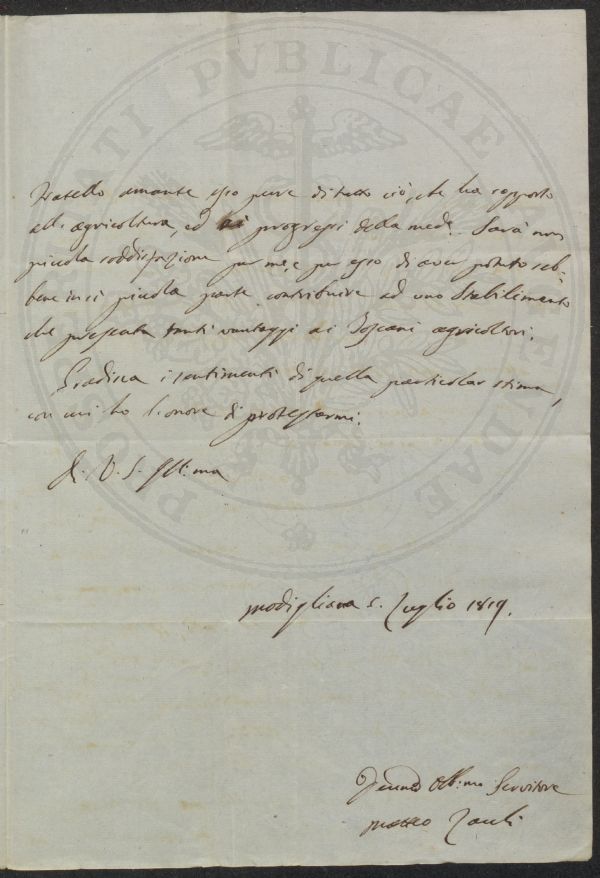 Fratello amante esso pure di tutto ciò, che ha rapporto
all' agricoltura, ed ai progressi della med.a. Sarà non
piccola soddisfazione per me, e per esso di aver potuto seb=
bene in sì piccola parte contribuire ad uno Stabilimento
che presenta tanti vantaggi ai Toscani agricoltori.
Gradisca i sentimenti di quella particolar stima,
con cui ho l'onore di protestarmi.
Di V. S. Ill:ma
Modigliana 5. Luglio 1819.
Obb:mo Servitore
Matteo
POSTERITATI PUBLICAE